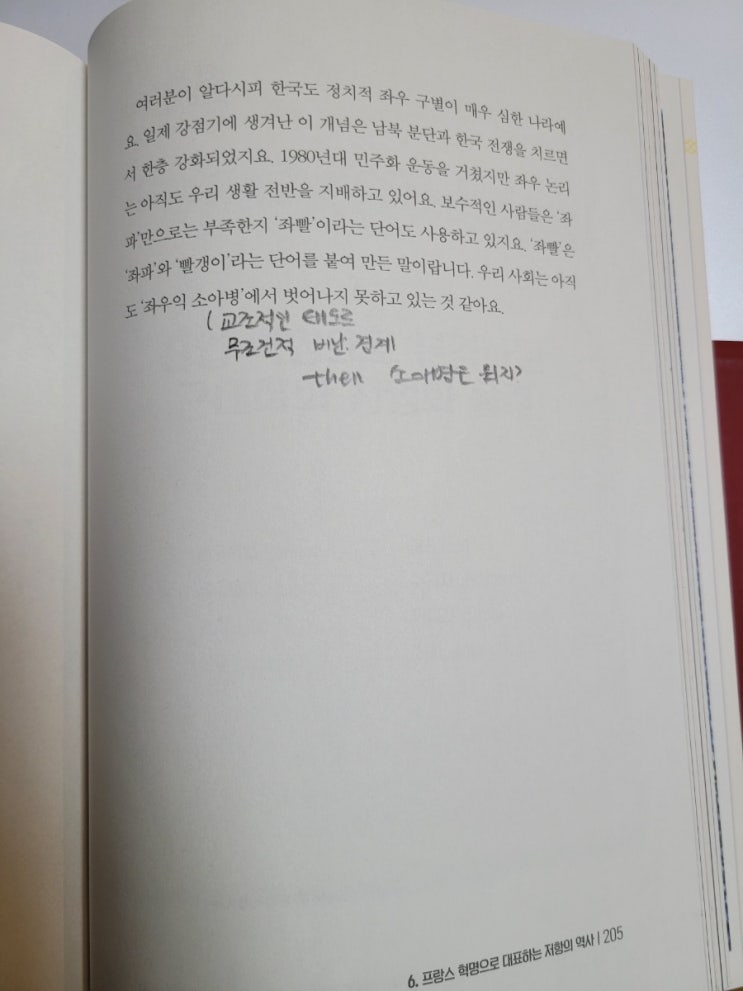 여러분이 알다시피 한국도 정치적 좌우 구별이 매우 심한 나라예
요. 일제 강점기에 생겨난 이 개념은 남북 분단과 한국 전쟁을 치르면
서 한층 강화되었지요. 1980년대 민주화 운동을 거쳤지만 좌우 논리
는 아직도 우리 생활 전반을 지배하고 있어요. 보수적인 사람들은 ‘좌
파’만으로는 부족한지 ‘좌빨’이라는 단어도 사용하고 있지요. ‘좌빨’은
‘좌파’와 ‘빨갱이’라는 단어를 붙여 만든 말이랍니다. 우리 사회는 아직
도 ‘좌우익 소아병’에서 벗어나지 못하고 있는 것 같아요.
(교조적인 태도로
무조건적 비난. 경계
then 소아병은 뭐지>
6. 프랑스 혁명으로 대표하는 저항의 역사 | 205